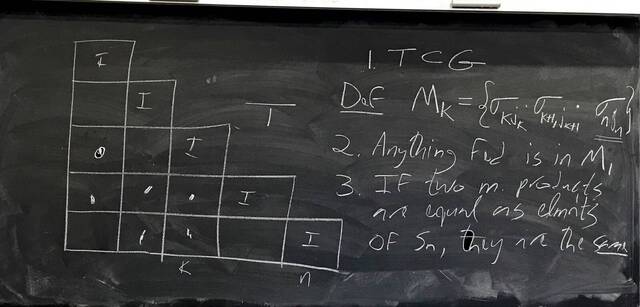 I
I
I
I
I
K
n
T
1. TCG
Def M_K = {σ_Kj_K · σ_K+1,j_K+1 ... σ_nj_n}
2. Anything Fud is in M_1
3. IF two m. products
are equal as elmnts
OF Sn, they are the same